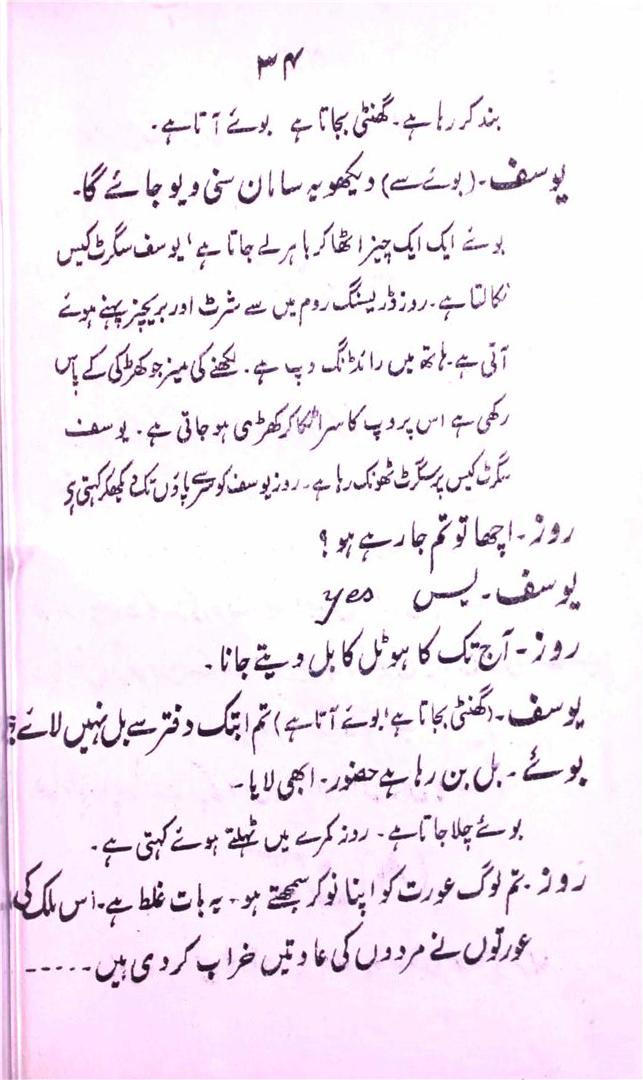 ۳۴
بند کر رہا ہے۔ گھنٹی بجاتا ہے بوئے آتا ہے۔
یوسف۔ (بوئے سے) دیکھو یہ سامان سنی ویو جائے گا۔
بوئے ایک ایک چیز اٹھا کر باہر لے جاتا ہے' یوسف سگرٹ کیس
نکالتا ہے۔ روز ڈریسنگ روم میں سے شرٹ اور بریچز پہنے ہوئے
آتی ہے۔ ہاتھ میں رائڈنگ وپ ہے۔ لکھنے کی میز جو کھڑکی کے پاس
رکھی ہے اس پر وپ کا سرا ٹکا کر کھڑی ہو جاتی ہے۔ یوسف
سگرٹ کیس پر سگرٹ ٹھونک رہا ہے۔ روز یوسف کو سر سے پاؤں تک دیکھکر کہتی ہے
روز۔ اچھا تو تم جا رہے ہو؟
یوسف۔ یس yes
روز۔ آج تک کا ہوٹل کا بل دیتے جانا۔
یوسف۔ (گھنٹی بجاتا ہے' بوئے آتا ہے) تم ابتک دفتر سے بل نہیں لائے؟
بوئے۔ بل بن رہا ہے حضور۔ ابھی لایا۔
بوئے چلا جاتا ہے۔ روز کمرے میں ٹہلتے ہوئے کہتی ہے۔
روز۔ تم لوگ عورت کو اپنا نوکر سمجھتے ہو۔ یہ بات غلط ہے۔ اس ملک کی
عورتوں نے مردوں کی عادتیں خراب کر دی ہیں۔-----